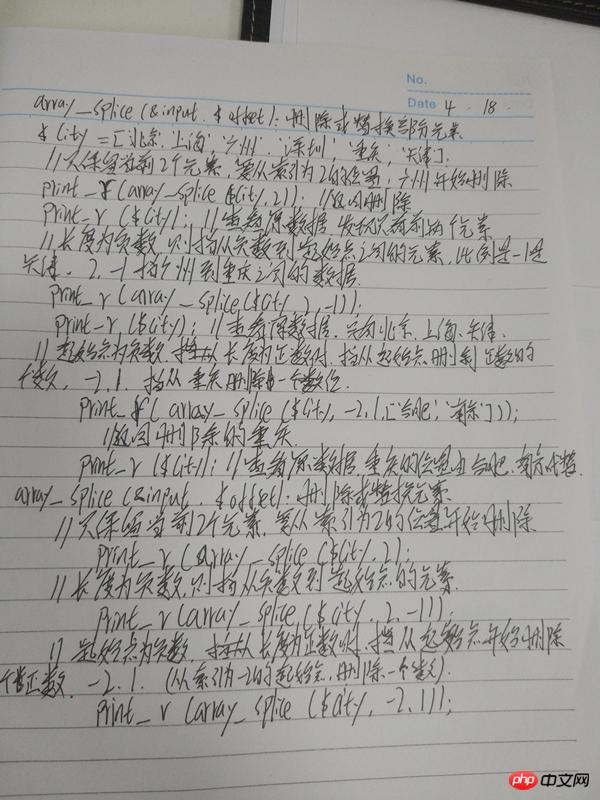 No.
Date 4 . 18 .
array_splice (&input, $offset): 删除或替换部分元素
$city = ['北京', '上海', '广州', '深圳', '重庆', '天津'];
//只保留前2个元素, 要从索引为2的位置, 广州开始删除
print_r (array_splice ($city, 2)); //返回删除
print_r ($city); //查看原数据 发现只有前两个元素
//长度为负数, 则指从负数到起始点之间的元素, 此例是-1是
天津, 2, -1 指广州到重庆之间的数据.
print_r (array_splice ($city, 2, -1));
print_r ($city); //查看原数据, 只有北京, 上海, 天津.
//起始点为负数, 长度为正数时, 指从起始点删到正数的
个数, -2, 1. 指从重庆删除一个数位
print_r ( array_splice ($city, -2, 1, ['合肥', '南京']));
//返回删除的重庆.
print_r ($city); //查看原数据 重庆的位置由合肥, 南京代替.
array_splice (&input, $offset): 删除或替换元素
//只保留前2个元素, 要从索引为2的位置开始删除
print_r (array_splice ($city, 2);
//长度为负数, 则指从负数到起始点的元素.
print_r (array_splice ($city, 2, -1));
// 起始点为负数, 长度为正数时, 指从起始点开始删除
正数, -2, 1. (从索引为-2的起始点, 删除一个数).
print_r (array_splice ($city, -2, 1));
php 中文网